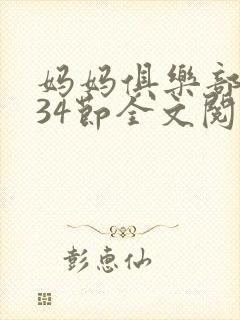 妈妈俱樂部
34節全文閱
彭惠仙